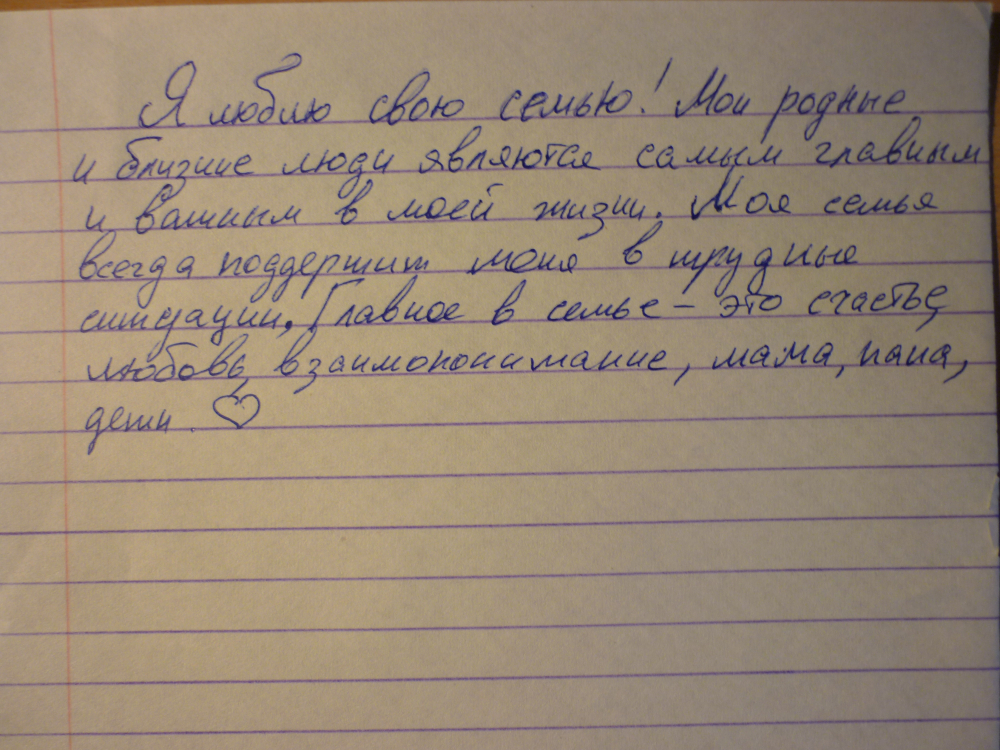 Я люблю свою семью! Мои родные
и близкие люди являются самым главным
и важным в моей жизни. Моя семья
всегда поддержит меня в трудные
ситуации. Главное в семье – это счастье,
любовь, взаимопонимание, мама, папа,
дети. ♡